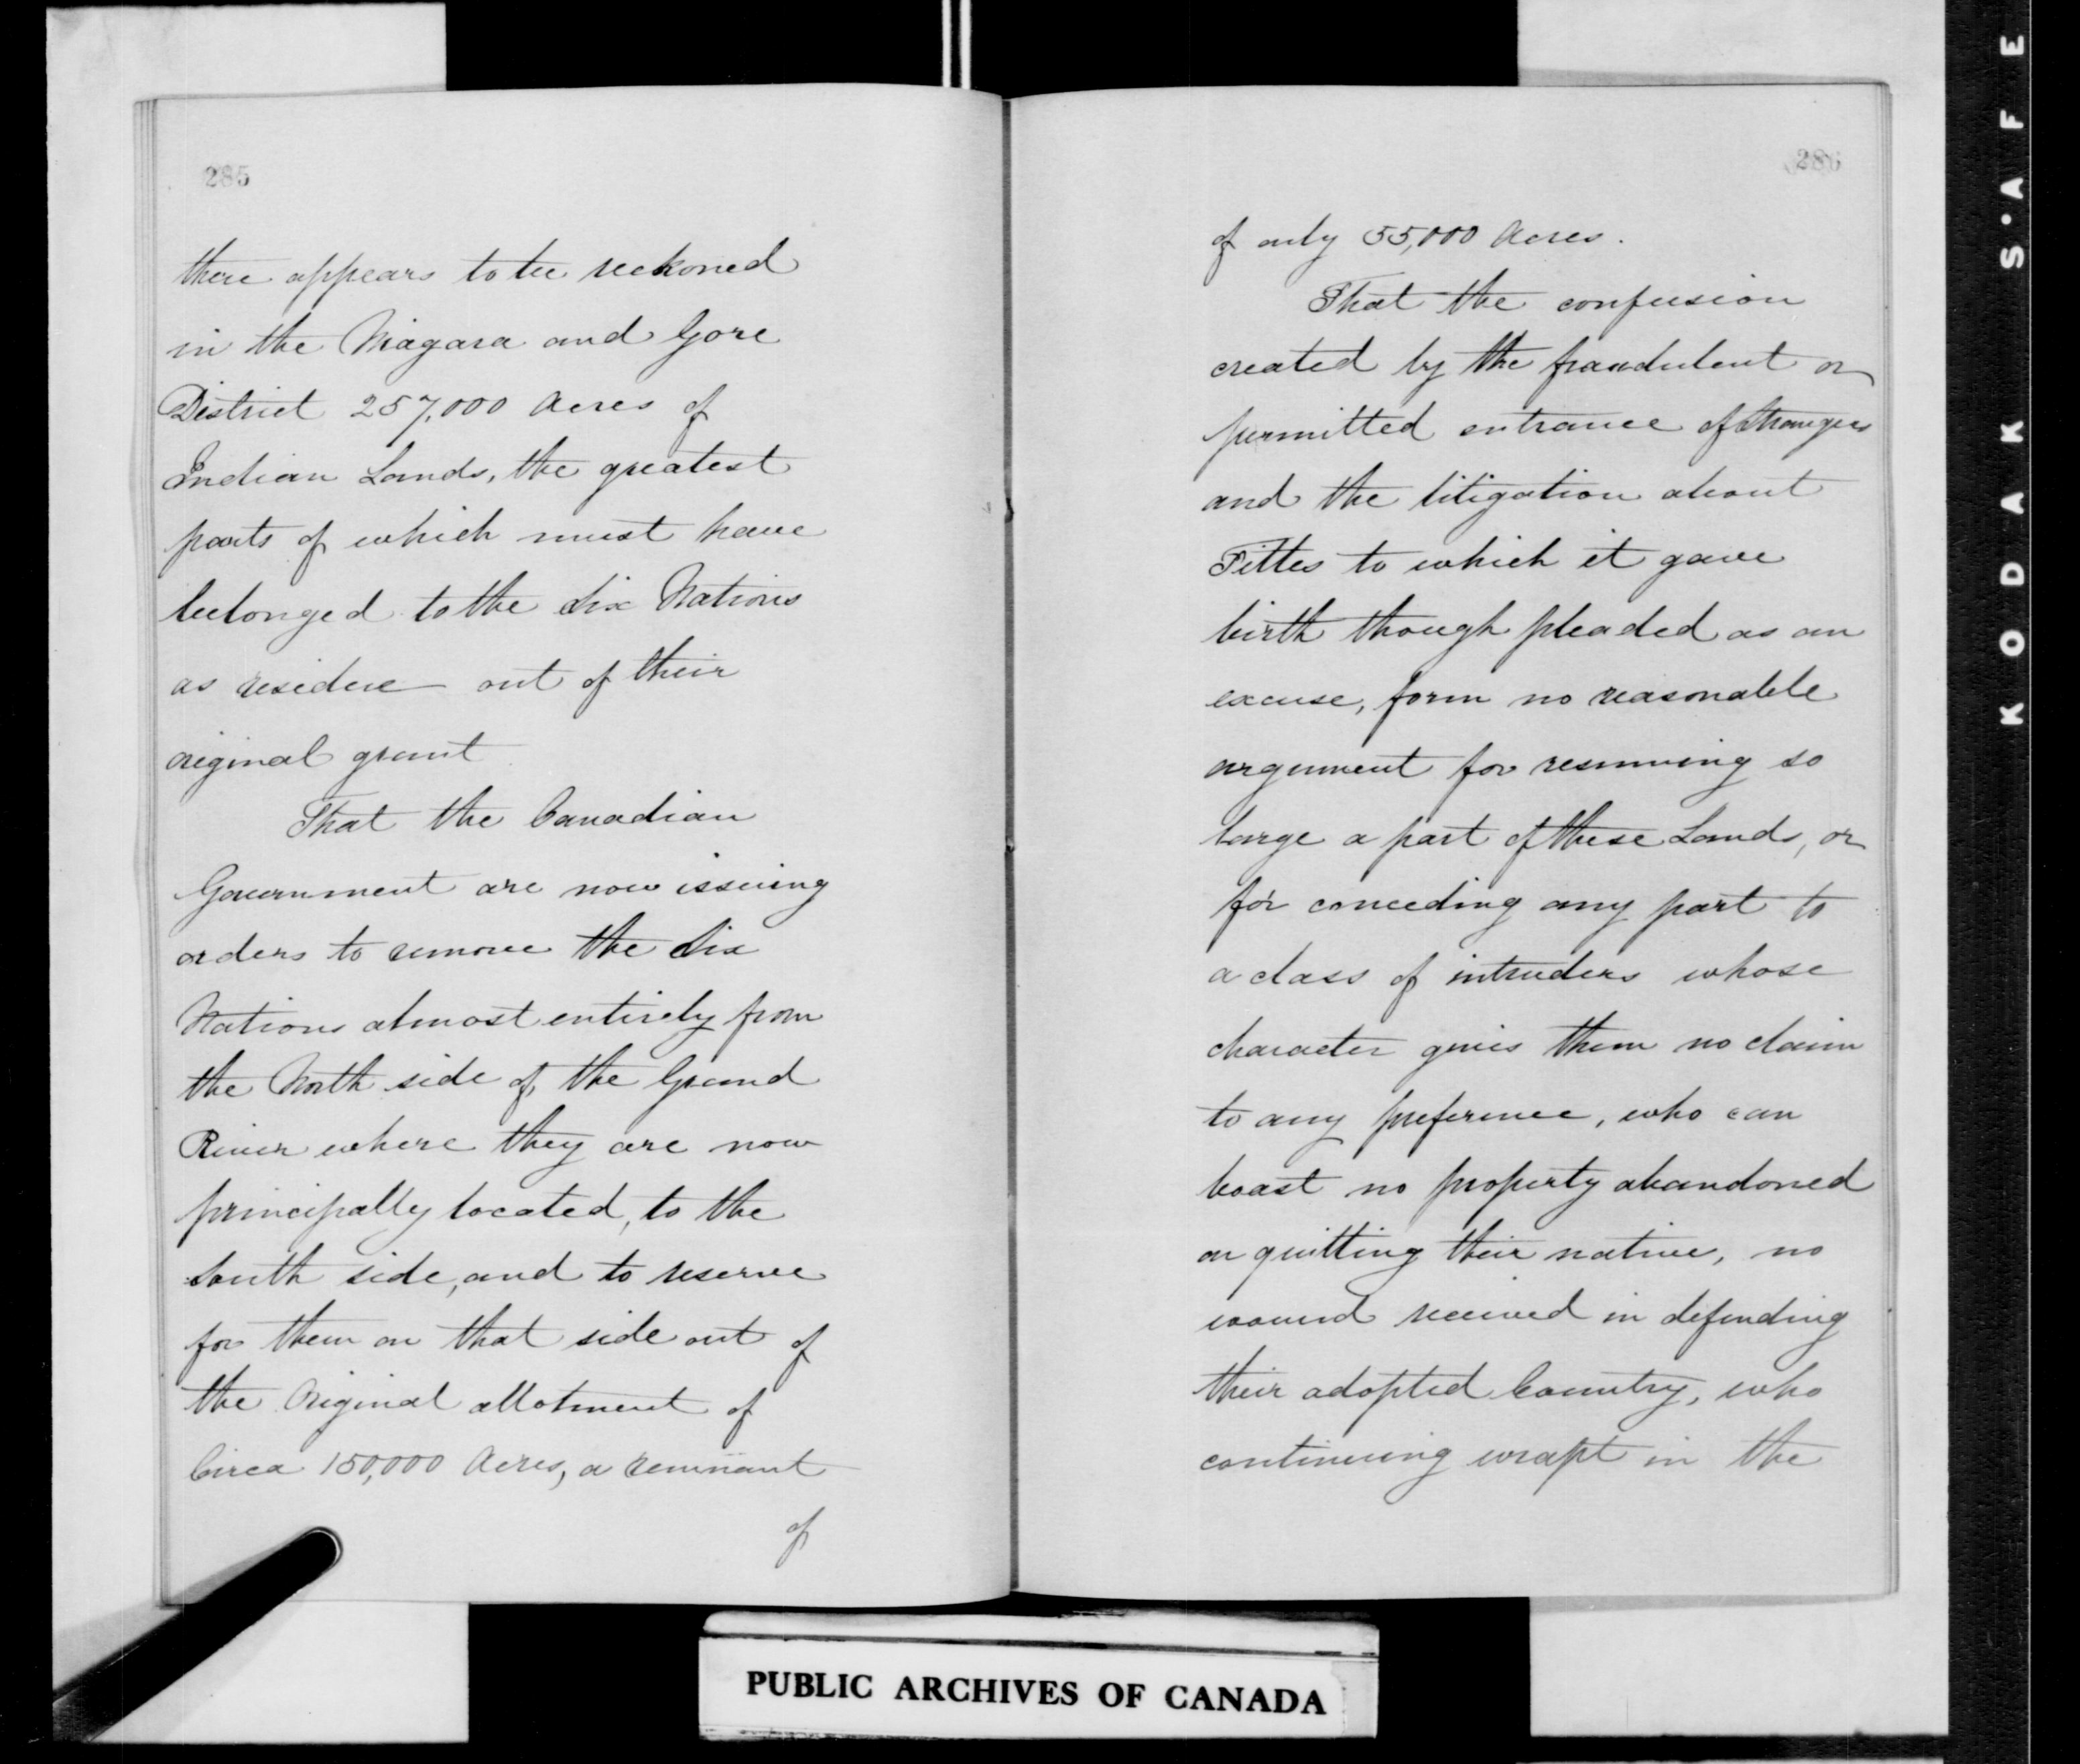 285
there appears to be reckoned
in the Niagara and Gore
District 257,000 Acres of
Indian Lands, the greatest
parts of which must have
belonged to the Six Nations
as residue out of their
original grant
That the Canadian
Government are now issuing
orders to remove the Six
Nations almost entirely from
the North side of the Grand
River where they are now
principally located, to the
South side, and to reserve
for them on that side out of
the Original allotment of
Circa 150,000 Acres, a remnant
of
286
of only 55,000 Acres.
That the confusion
created by the fraudulent or
permitted entrance of Strangers
and the litigation about
Titles to which it gave
birth though pleaded as an
excuse, form no reasonable
argument for resuming so
large a part of these Lands, or
for conceding any part to
a class of intruders whose
character gives them no claim
to any preference, who can
boast no property abandoned
on quitting their native, no
wound received in defending
their adopted Country, who
continuing wrapt in the
PUBLIC ARCHIVES OF CANADA
KODAK S'AFE